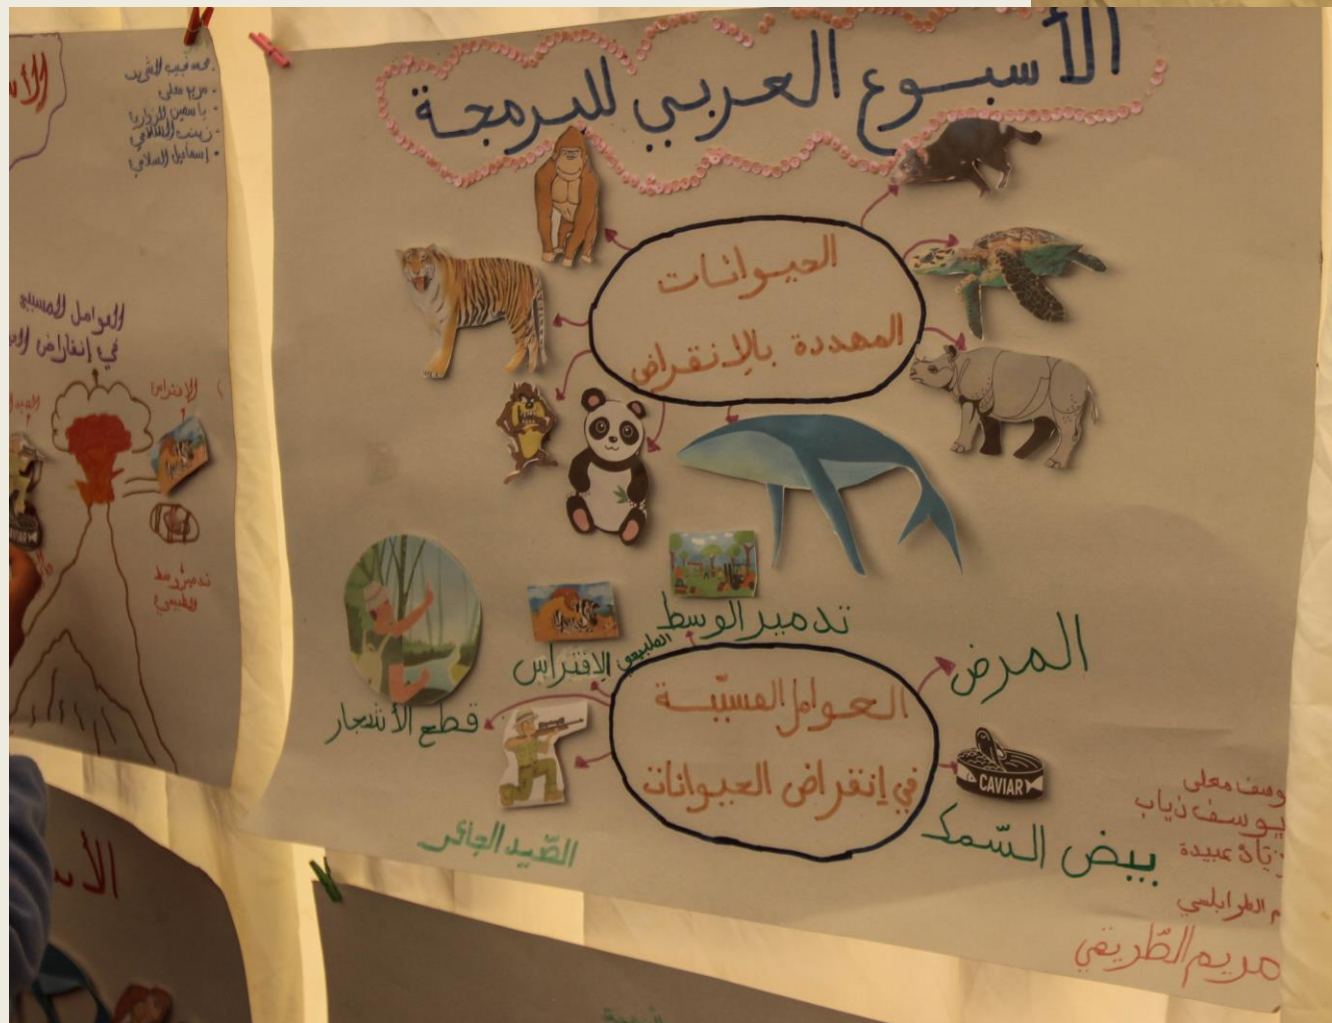 الأسبوع العربي للبرمجة
الحيوانات
المهددة بالإنقراض
تدمير الوسط
الطبيعي
الإفتراس
قطع الأشجار
المرض
العوامل المسبّبة
في إنقراض الحيوانات
CAVIAR
بيض السّمك
الصّيد الجائر
يوسف معلى
يوسف ذياب
زياد عبيدة
م الطرابلسي
مريم الطّريقي
محمد نجيب الشريف
مريم معلى
زينب السلامي
إسماعيل السلامي
العوامل المسببة
في إنقراض
الافتراس
تدمير وسط
الطبيعي